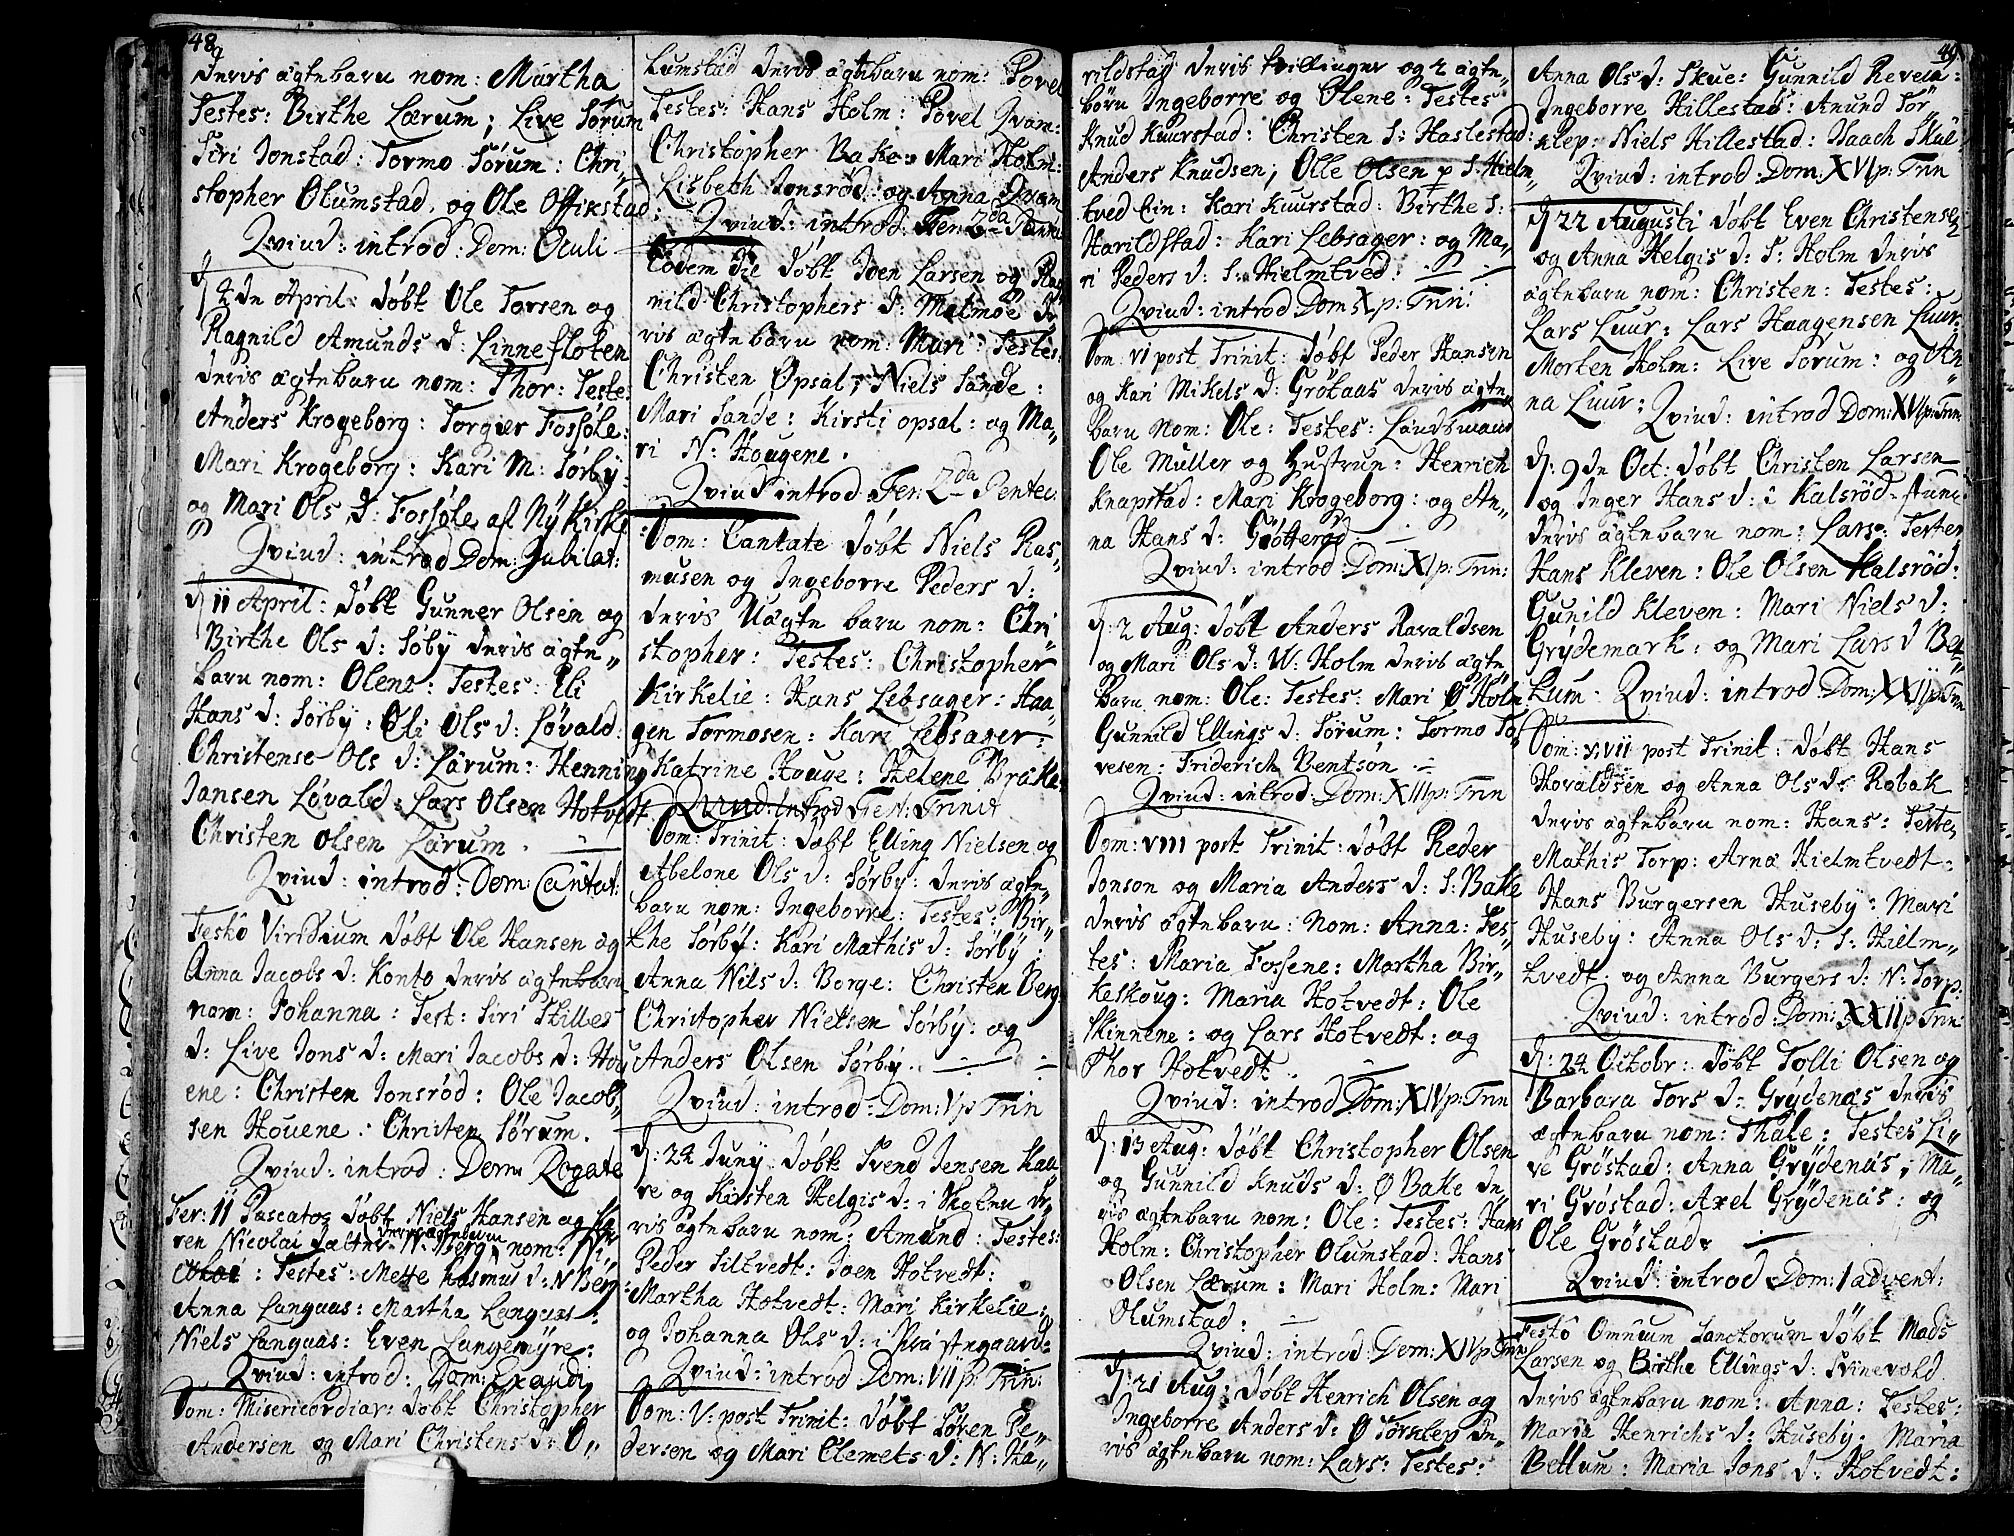 48
deris ægtebarn nom: Martha
Testes: Birthe Lærum; Live Sørum
Siri Jonstad: Tormo Sørum: Chri„
stopher Olumstad, og Ole Offixstad
Qvind: introd: Dom: Oculi
d 4de April: døbt Ole Torsen og
Ragnild Amunds d: Linnefloten
deris ægtebarn nom: Thor: Teste:
Anders Krogeborg: Torgier Fossøle:
Mari Krogeborg: Kari M: Sørby:
og Mari Ols d: Fossøle af Nykirke
Qvind: introd Dom: Jubilat:
d 11 April: døbt Gunner Olsen og
Birthe Ols d: Søby deris ægte„
barn nom: Olene: Testes: Eli
Hans d: Sørby: Eli Ols d: Løvald:
Christense Ols d: Lærum: Henning
Jansen Løvald: Lars Olsen Hotvedt
Christen Olsen Lærum.
Qvind: introd: Dom: Cantat:
Festô Viridium døbt Ole Hansen og
Anna Jacobs d: Konto deris ægtebarn
nom: Johanna: Test: Siri Hilles
d: Live Jons d: Mari Jacobs d: Hou
ene: Christen Jonsrød: Ole Jacob„
sen Houene: Christen Sørum.
Qvind: introd: Dom Rogate
Fer: 11 Pascatos døbt Niels Hansen og
ren Nicolai datter N: Berg deris ægtebarn nom: Ni„
colai: Testes: Mette Rasmus d: N Berg
Anna Langaas: Martha Langaas:
Niels Langaas: Even Langemyre:
Qvind: introd: Dom: Exaudi
Dom: Misericordiar: døbt Christopher
Andersen og Mari Christens d: O„
lumstad deris ægtebarn nom: Povel
Testes: Hans Holm: Povel Qvam:
Christopher Bake: Mari Holm:
Lisbeth Jonsrød: og Anna Qvam
Qvind: introd: Fer: 2da Pente
Eodem die døbt Joen Larsen og Rag
nild Christophers d: Melmøe de
ris ægtebarn nom: Mari: Testes:
Christen Opsal; Niels Sande:
Mari Sande: Kirsti Opsal: og Ma„
ri N: Hougene.
Qvind introd: Fer: 2da Pentec.
Dom: Cantate døbt Niels Ras„
musen og Ingeborre Peders d:
deris Uægte barn nom: Chri„
stopher: Testes: Christopher
Kirkelie: Hans Lebsager: Haa„
gen Tormosen: Kari Lebsager:
Katrine Houge: Helene Brâke:
Qvind: introd Fest: Trinit
Dom: Trinit: døbt Elling Nielsen og
Abelone Ols d: Sørby: deris ægte„
barn nom: Ingeborre: Testes: Bir„
the Sørby: Kari Mathis d: Sørby:
Anna Nils d: Borge: Christen Berg
Christopher Nielsen Sørby: og
Anders Olsen Sørby.
Qvind: introd: Dom: V p: Trin
d: 24 Juny døbt Svend Jensen Kaa
re og Kirsten Helgis d: i Holmen de
ris ægtebarn nom: Amund: Testes:
Peder Siltvedt: Joen Hotvedt:
Martha Hotvedt: Mari Kirkelie:
og Johanna Ols d: i Præstegaard:
Qvind: introd: Dom: VII p: Trin:
Dom: V: post Trinit: døbt Søren Pe„
dersen og Mari Clemets d: N: Ha„
rildstad deris tvillinger og 2 ægte„
børn Ingeborre og Olene: Testes
Knud Kuurstad: Christen S: Haslestad:
Anders Knudsen; Olle Olsen S: Hielm„
tved Ein: Kari Kuurstad: Birthe S:
Harildstad: Kari Lebsager: og Ma„
ri Peders d: S: Hielmtved:
Qvind: introd Dom X p: Trin:
Dom: VI post Trinit: døbt Peder Hansen
og Kari Mikels d: Grøtaas deris ægte„
barn Nom: Ole: Testes: Landsmand
Ole Muller og Hustrun: Henrich
Knapstad: Mari Krogeborg: og An„
na Hans d: Grøtterød.
Qvind: introd: Dom: XI p: Trin:
d: 2 Aug: døbt Anders Havaldsen
og Mari Ols d: W: Holm deris ægte
barn nom: Ole: Testes: Mari Ø Holm
Gunnild Ellings d: Sørum: Tormo To„
resen: Friderich Bentson
Qvind: introd: Dom: XIII p: Trin
Dom: VIII post Trinit: døbt Peder
Jonson og Maria Anders d: S: Bake
deris ægtebarn: Nom: Anna: Tes„
tes: Maria Fossene: Martha Bir„
keskoug: Maria Hotvedt: Ole
Skinnene: og Lars Hotvedt: og
Thor Hotvedt.
Qvind: introd Dom: XIV p: Trin
d: 13 Aug: døbt Christopher Olsen
og Gunnild Knuds d: Ø Bake de
ris ægtebarn nom: Ole: Testes: Hans
Holm: Christopher Olumstad: Hans
Olsen Lærum: Mari Holm: Mari
Olumstad:
Qvind: introd: Dom: XIV p: Trin
d: 21 Aug: døbt Henrich Olsen og
Ingeborre Anders d: Ø Torslep de„
ris ægtebarn nom: Lars: Testes:
49
Anna Ols d: Skue: Gunnild Reveta:
Ingeborre Hillestad: Amund Tor„
slep: Niels Hillestad: Haach Skul„
Qvind: introd: Dom: XVI p: Trin
d 22 Augusti døbt Even Christensen
og Anna Helgis d: S: Holm deris
ægtebarn nom: Christen: Testes:
Lars Luur: Lars Haagensen Luur:
Morten Holm: Live Sorum: og An„
na Luur: Qvind: introd Dom: XVI p: Trin:
d: 9de Oct: døbt Christen Larsen
og Inger Hans d: i Kalsrød stuen:
deris ægtebarn nom: Lars: Testes
Hans Kleven: Ole Olsen Kalsrød:
Gunild Kleven: Mari Niels d:
Grydemark: og Mari Lars d Bet„
tum. Qvind: introd: Dom: XXII p: Trin
Dom: XVII post Trinit: døbt Hans
Hovaldsen og Anna Ols d: Robak
deris ægtebarn nom: Hans: Testes
Mathis Torp: Arne Hielmtvedt:
Hans Burgersen Huseby: Mari
Huseby: Anna Ols d: S: Hielm„
tvedt: og Anna Burgers d: N: Torp:
Qvind: introd: Dom: XXII p Trin:
d: 24 Octobr: døbt Tolli Olsen og
Barbara Tors d: Grydenæs deris
ægtebarn nom: Thale: Testes Li„
ve Grøstad: Anna Grydenæs; Ma„
ri Grøstad: Axel Grydenæs: og
Ole Grøstad:
Qvind: introd Dom: 1 advent:
Festô Omnium Sanctorum døbt Mads
Larsen og Birthe Ellings d: Svinevold
deris ægtebarn nom: Anna: Testes:
Maria Henrichs d: Huseby: Maria
Bettum: Maria Jons d: Hotvedt: